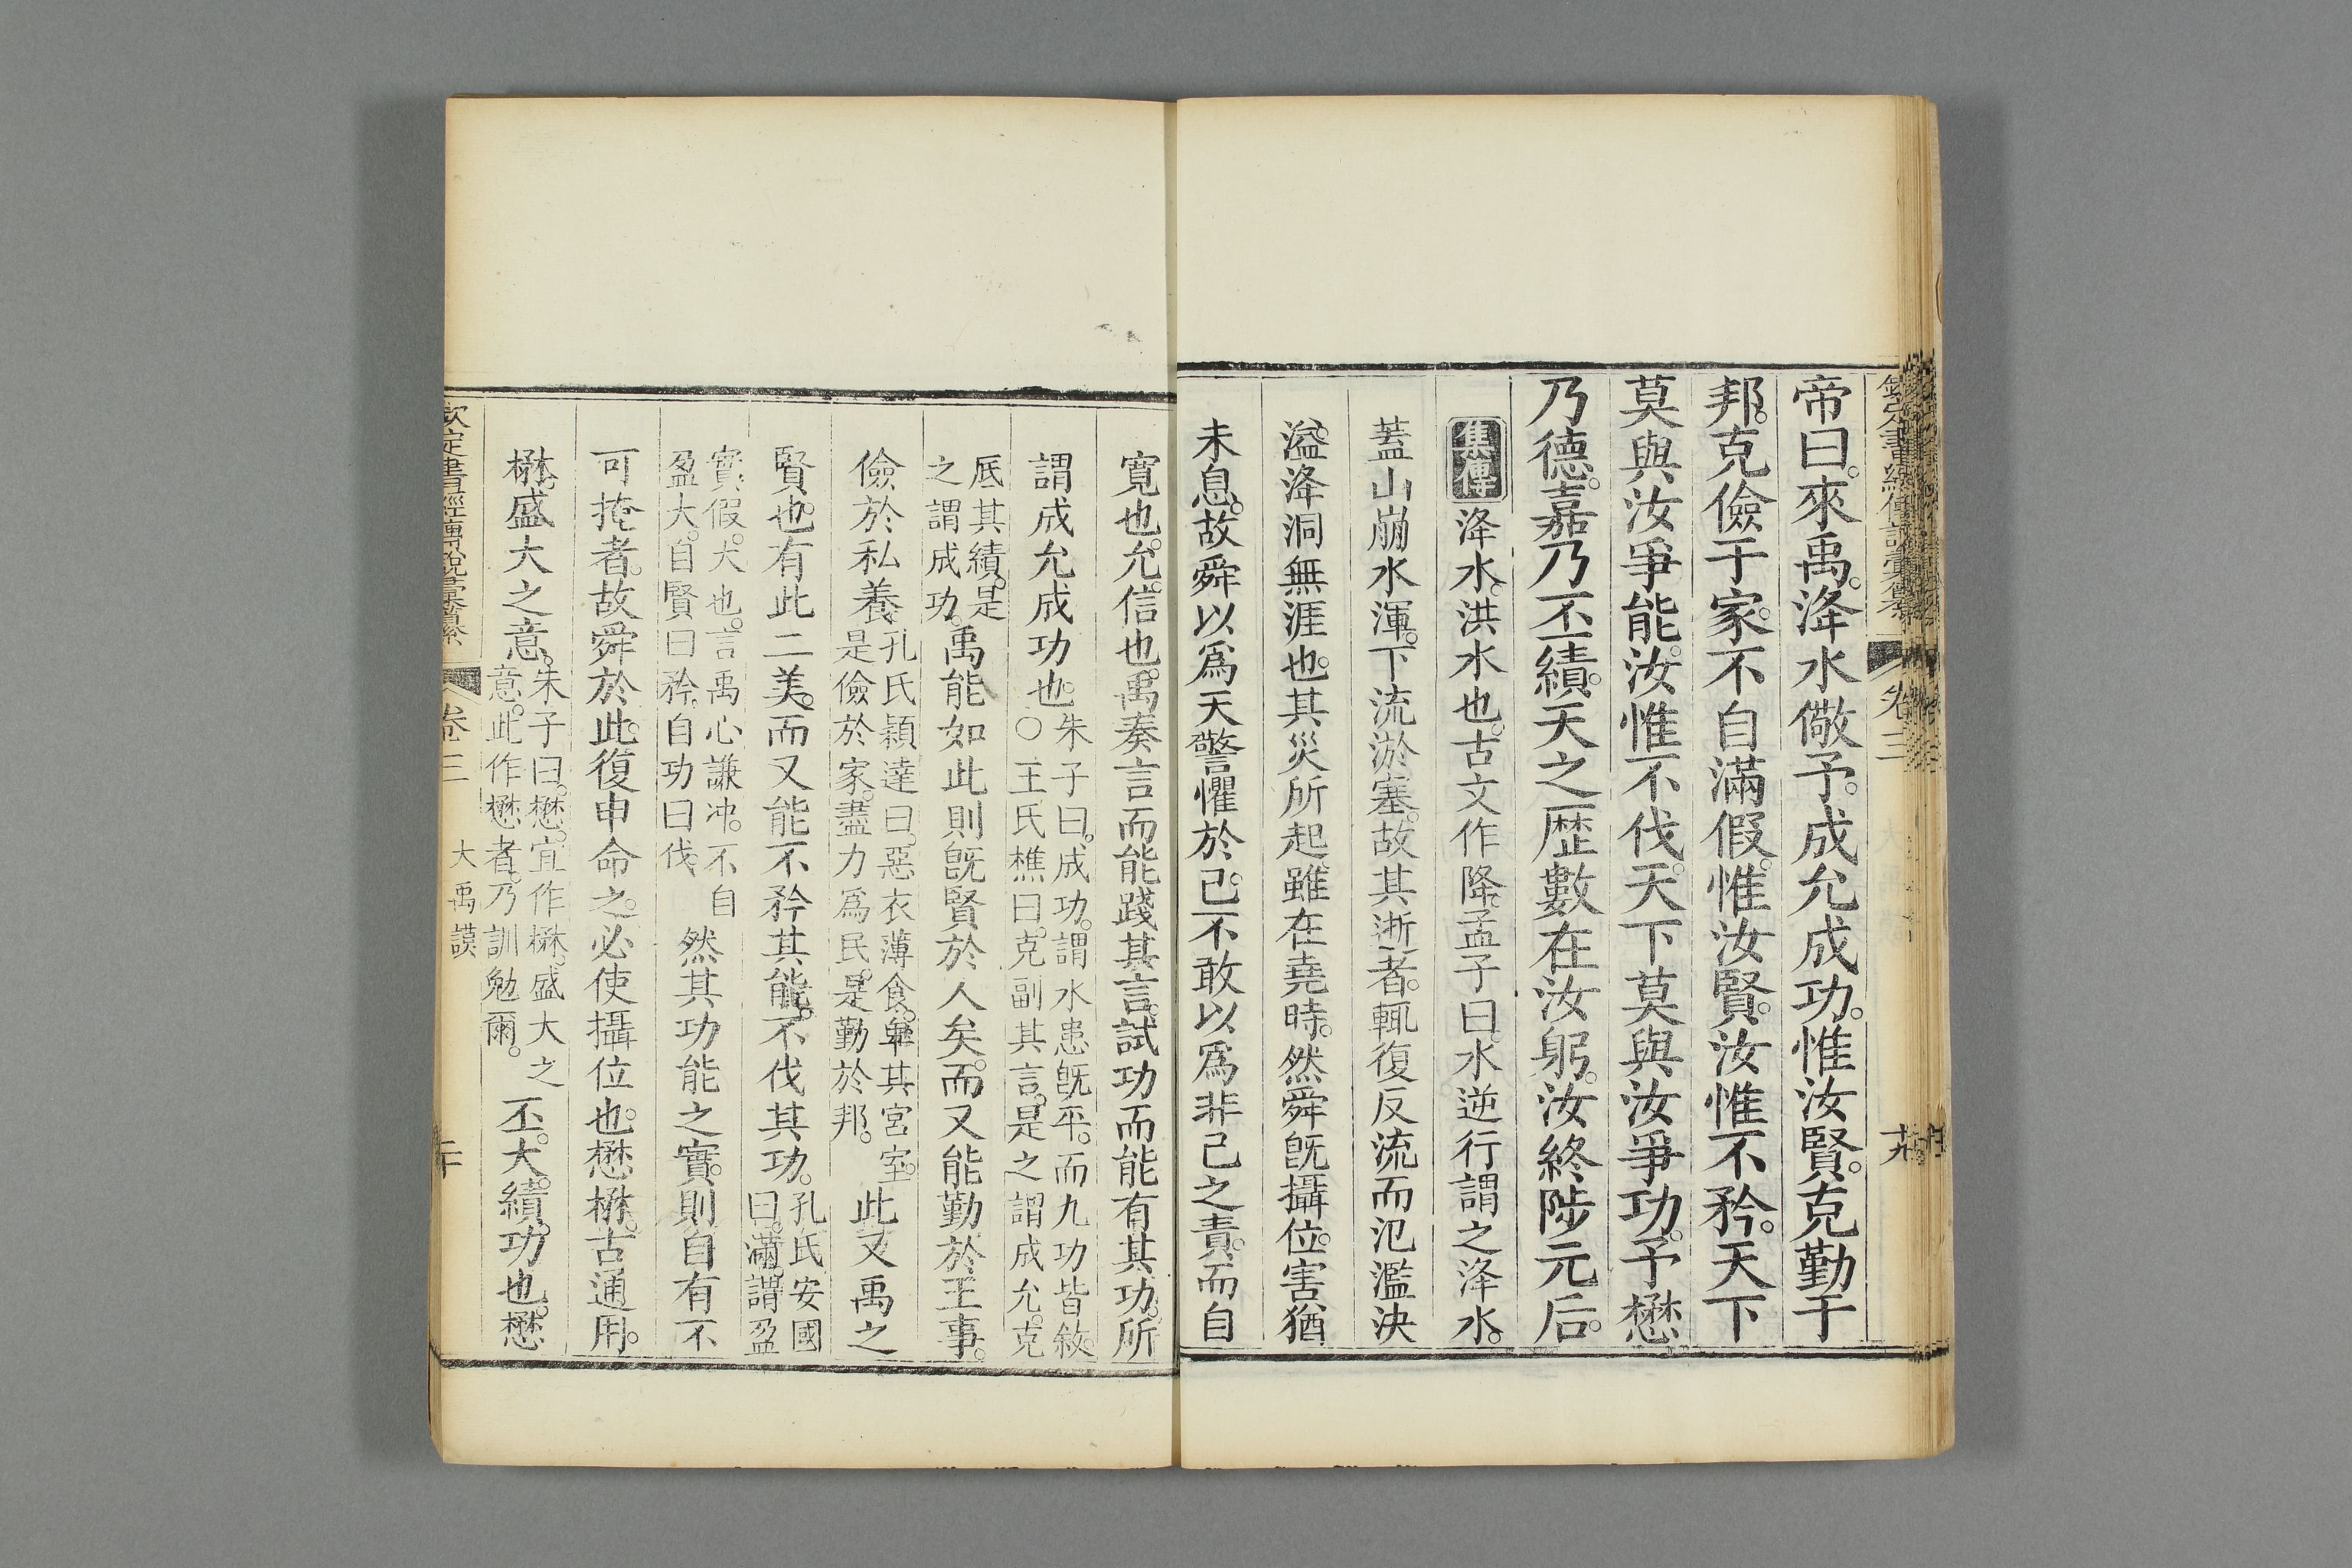 帝曰。來禹。洚水儆予。成允成功。惟汝賢。克勤于
邦。克儉于家。不自滿假。惟汝賢。汝惟不矜。天下
莫與汝爭能。汝惟不伐。天下莫與汝爭功。予懋
乃德。嘉乃丕績。天之歷數在汝躬。汝終陟元后。
集傳 洚水。洪水也。古文作降。孟子曰。水逆行謂之洚水。
蓋山崩水渾。下流淤塞。故其逝者。輒復反流而氾濫決
溢。洚洞無涯也。其災所起。雖在堯時。然舜旣攝位。害猶
未息。故舜以爲天警懼於己。不敢以爲非己之責。而自
寛也。允。信也。禹奏言而能踐其言。試功而能有其功。所
謂成允成功也。朱子曰。成功。謂水患旣平。而九功皆敘。
○王氏樵曰。克副其言。是之謂成允。克
厎其績。是
之謂成功。禹能如此則旣賢於人矣。而又能勤於王事。
儉於私養。孔氏穎達曰。惡衣薄食。卑其宮室。
是儉於家。盡力爲民。是勤於邦。此又禹之
賢也。有此二美。而又能不矜其能。不伐其功。孔氏安國
曰。滿。謂盈
實。假。大也。言禹心謙沖。不自
盈大。自賢曰矜。自功曰伐。然其功能之實。則自有不
可掩者。故舜於此。復申命之。必使攝位也。懋楙。古通用。
楙。盛大之意。朱子曰。懋。宜作楙。盛大之
意。此作懋者。乃訓勉爾。丕。大。績。功也。懋
欽定書經傳說彙纂 卷三 大禹謨 二十
卷三